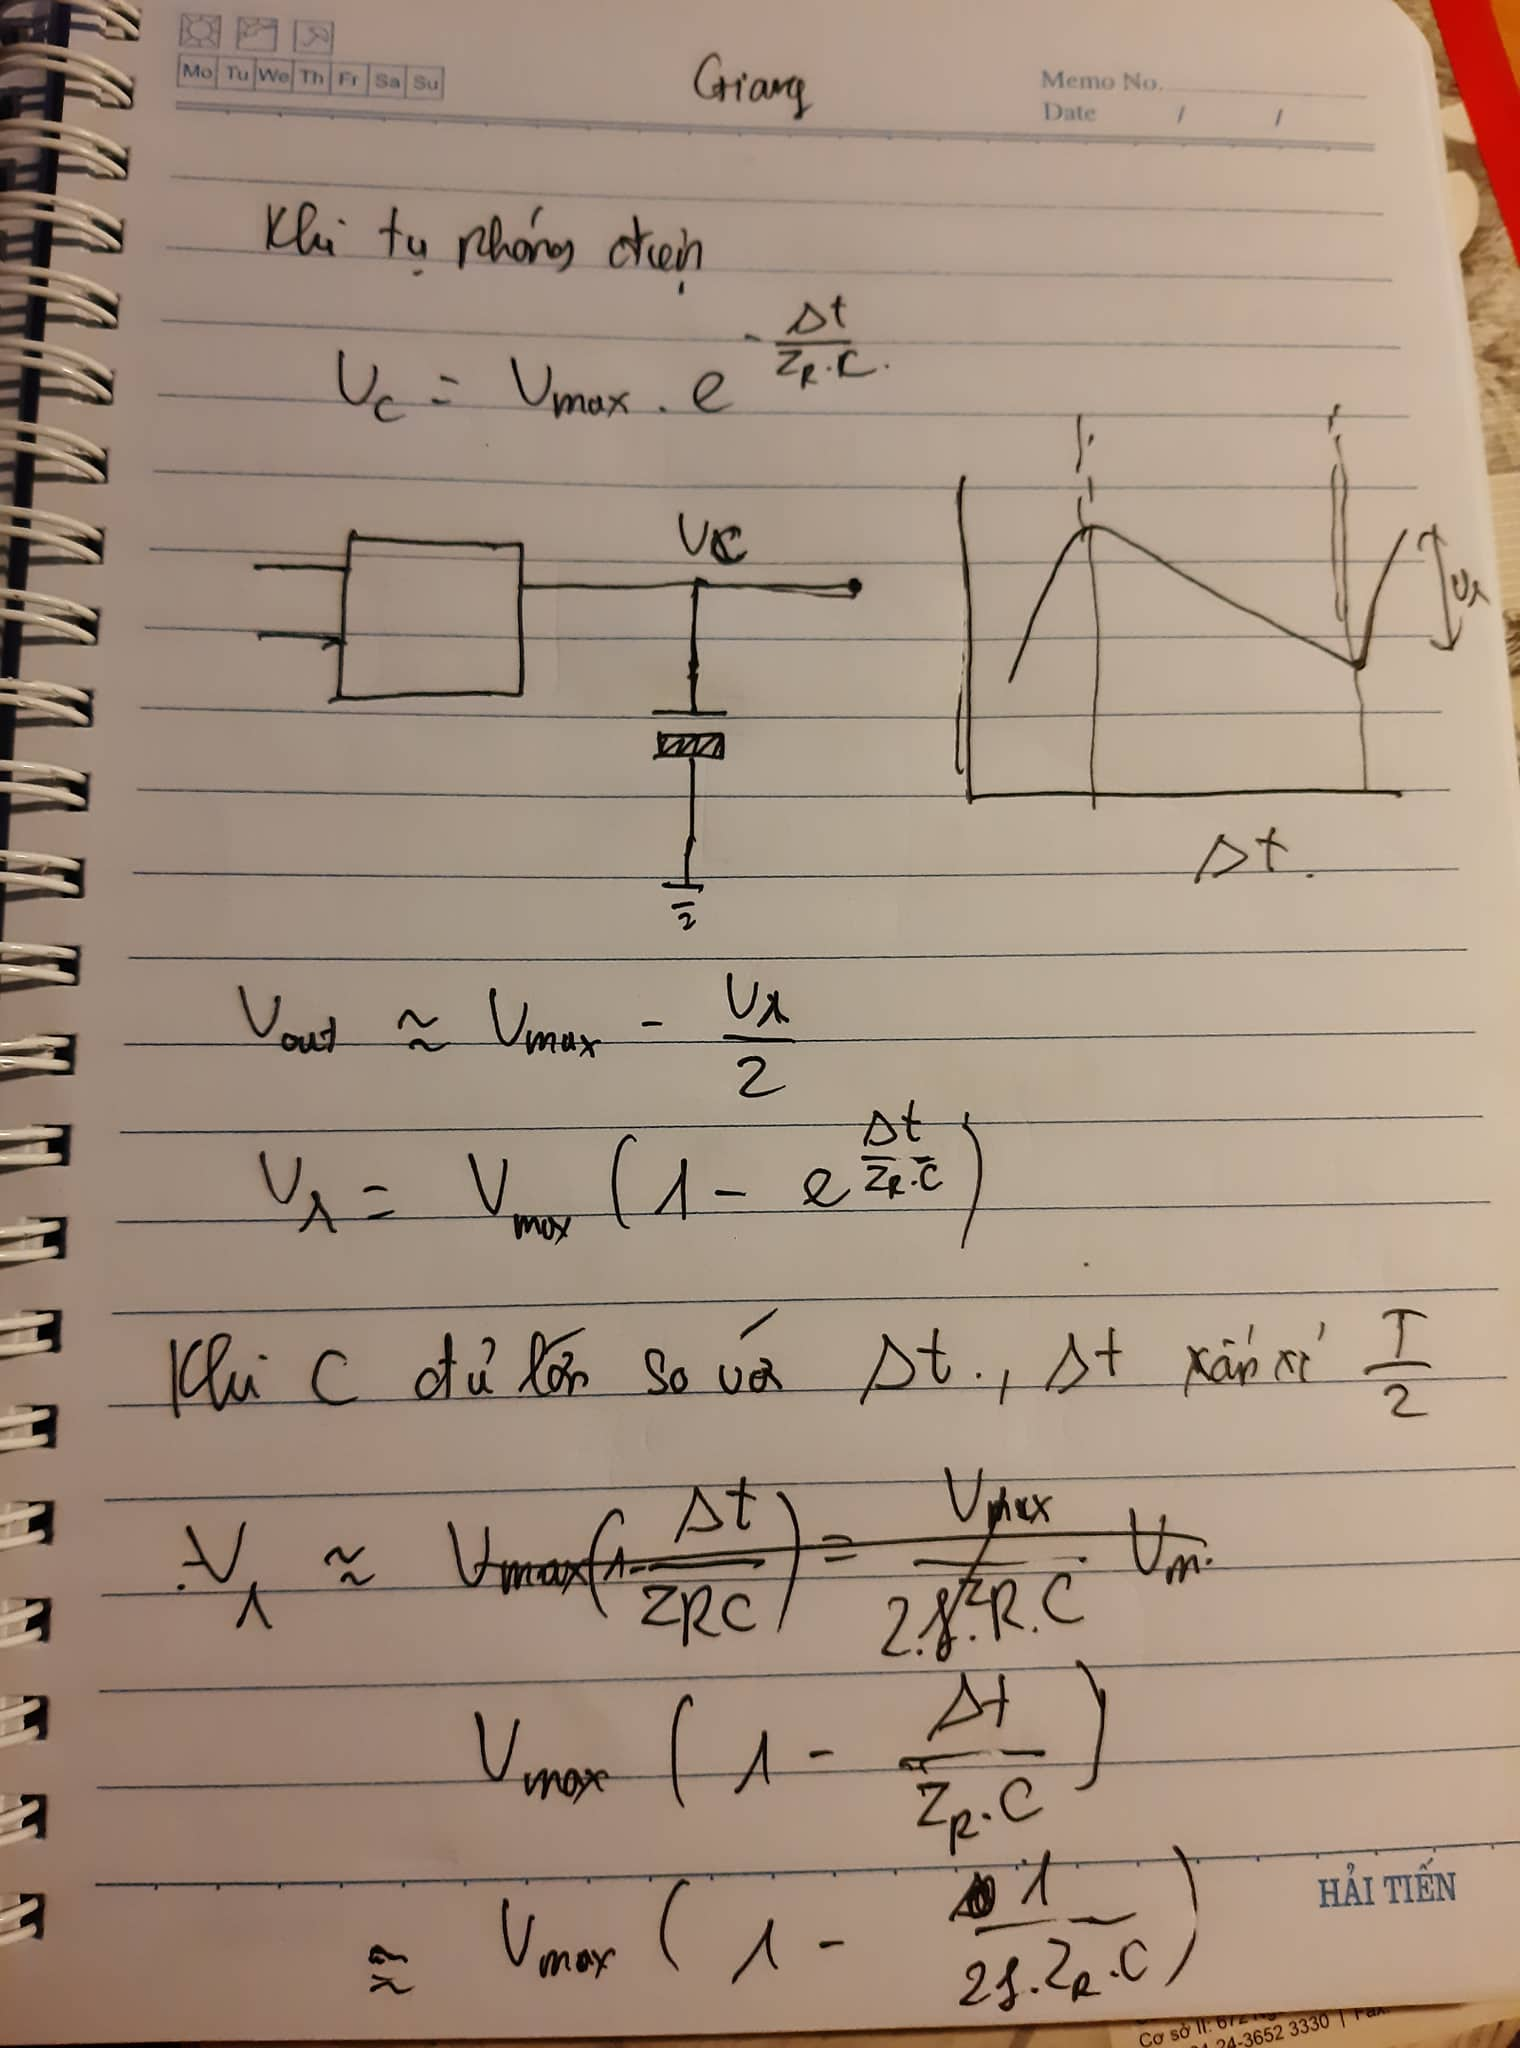 Mo Tu We Th Fr Sa Su
Giang
Memo No.
Date / /
Khi tụ phóng điện
Vc = Vmax . e^(-Δt/(Z_R.C.))
Vc
Vr
Δt.
Vout ≈ Vmax - Vr/2
Vr = Vmax (1 - e^(Δt/(Z_R.C)))
Khi C đủ lớn so với Δt., Δt xấp xỉ T/2
Vr ≈ Vmax(1-Δt/(ZRC)) = Vmax/(2.f.ZR.C) Vm.
Vmax (1 - Δt/(Z_R.C))
≈ Vmax (1 - 1/(2f.Z_R.C))
HẢI TIẾN
Cơ sở II: 672
24-3652 3330 | Fax: